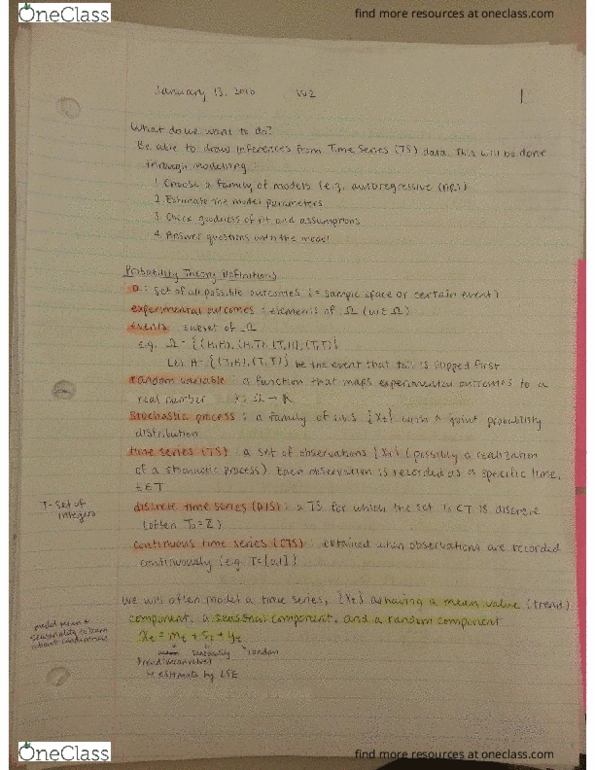 OneClass
find more resources at oneclass.com
January 13, 2016 W2
1
What do we want to do?
Be able to draw inferences from Time Series (TS) data. This will be done
through modelling:
1. Choose a family of models (e.g. autoregressive (AR))
2. Estimate the model parameters
3. Check goodness of fit and assumptions
4. Answer questions with the model
Probability Theory Definitions
Ω : set of all possible outcomes (= sample space or certain event)
experimental outcomes : elements of Ω (ω ∈ Ω)
events : subset of Ω
e.g. Ω = {(H,H), (H,T), (T,H), (T,T)}
Let A = {(T,H), (T,T)} be the event that tail is flipped first
random variable : a function that maps experimental outcomes to a
real number X: Ω → R
stochastic process : a family of r.v.s {Xt} with a joint probability
distribution
time series (TS) : a set of observations {Xt} (possibly a realization
of a stochastic process). Each observation is recorded at a specific time,
t ∈ T
T - set of
integers
discrete time series (DTS) : a TS for which the set is discrete
(often T0 = Z)
continuous time series (CTS) : obtained when observations are recorded
continuously (e.g. T = [0,1])
We will often model a time series, {Xt} as having a mean value (trend)
component, a seasonal component, and a random component
model mean +
seasonality to learn
Xt = mt + st + yt
seasonality random
estimate by LSE
OneClass
find more resources at oneclass.com